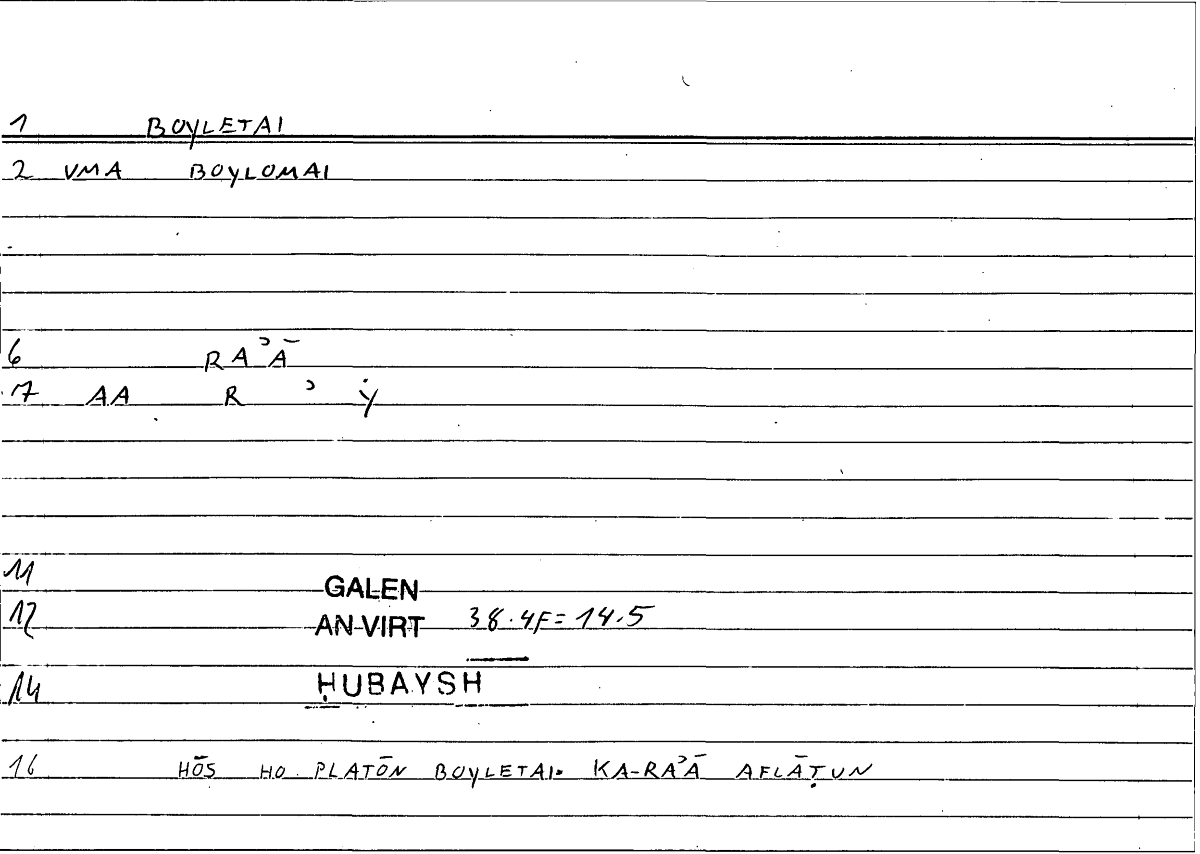 1 BOYLETAI
2 VMA BOYLOMAI
6 RAʾĀ
7 AA R ʾ Ẏ
11 GALEN
12 AN VIRT 38.4F=14.5
14 ḤUBAYSH
16 HŌS HO PLATŌN BOYLETAI. KA-RAʾĀ AFLĀṬUN